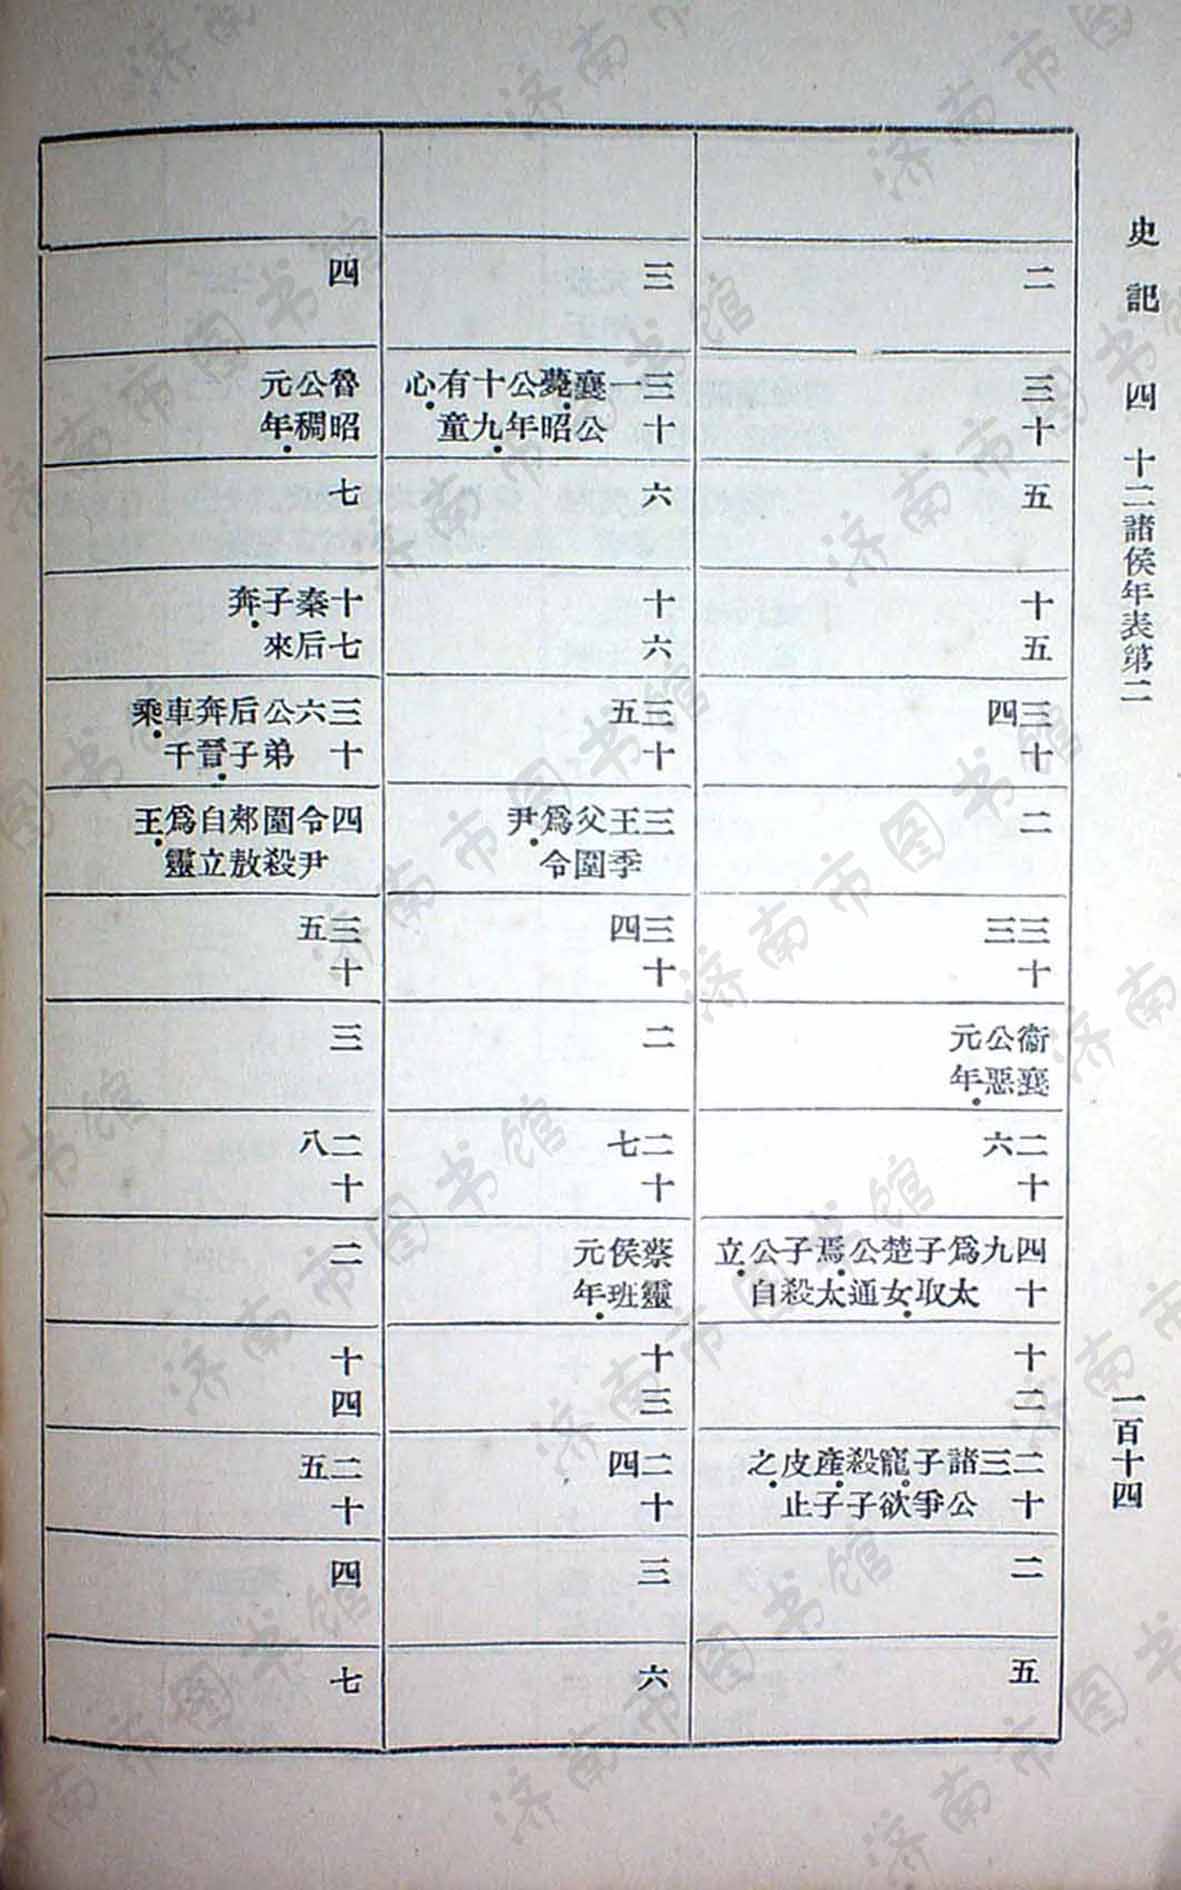 史記四 十二諸侯年表第二
一百十四
二
三十
五
十五
三十四
二
三十三
衞襄公惡元年
二十六
四十九爲太子取楚女公通焉太子殺公自立
十二
二十三諸公子爭寵欲殺子產子皮止之
二
五
三
三十一襄公薨昭公年十九有童心
六
十六
三十五
三王季父圍爲令尹
三十四
二
二十七
蔡靈侯班元年
十三
二十四
三
六
四
魯昭公稠元年
七
十七秦后子來奔
三十六公弟后子奔晉車千乘
四令尹圍殺郟敖自立爲靈王
三十五
三
二十八
二
十四
二十五
四
七
济南市图书馆